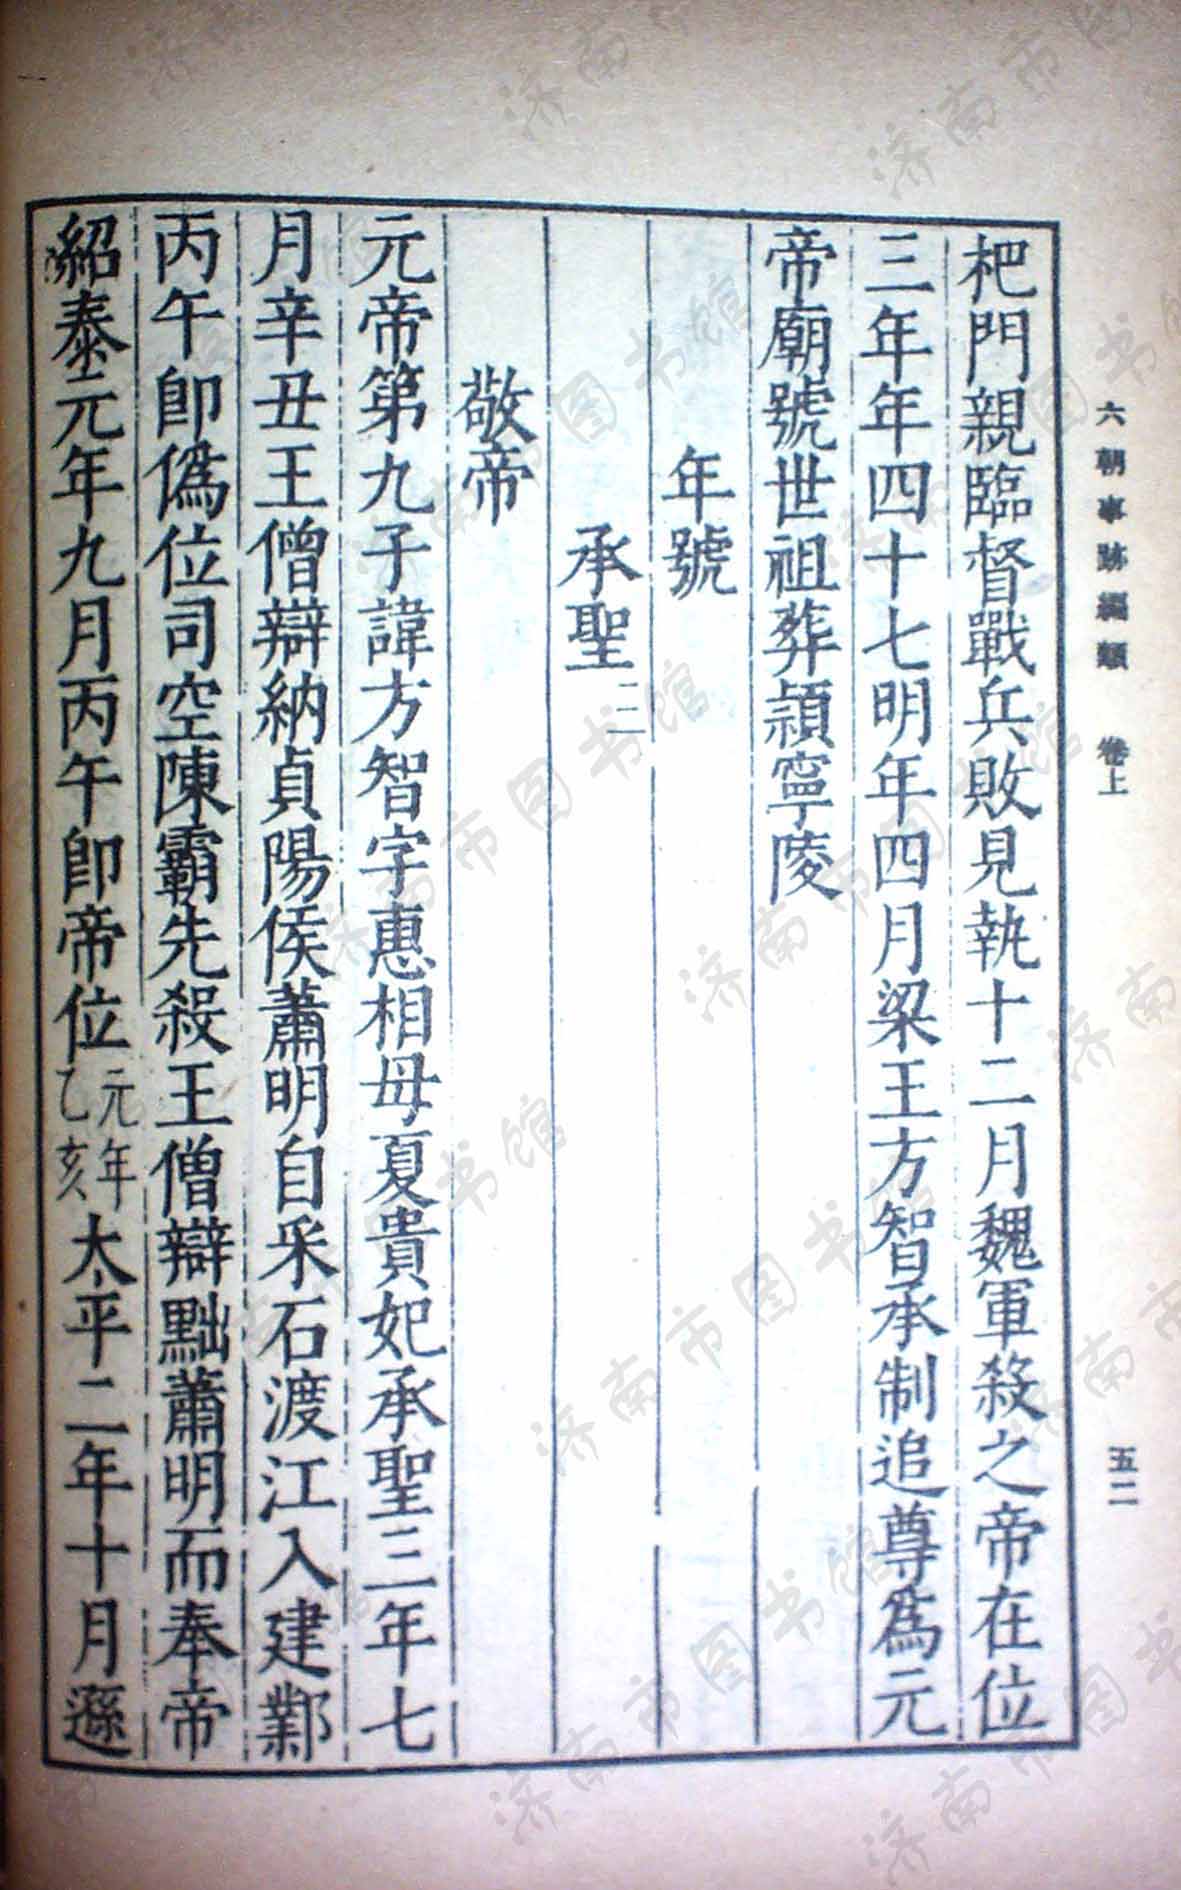 六朝事跡編類　卷上　五二
杷門親臨督戰兵敗見執十二月魏軍殺之帝在位
三年年四十七明年四月梁王方智承制追尊為元
帝廟號世祖葬頴寧陵
年號
承聖三
敬帝
元帝第九子諱方智字惠相母夏貴妃承聖三年七
月辛丑王僧辯納貞陽侯蕭明自采石渡江入建鄴
丙午即僞位司空陳霸先殺王僧辯黜蕭明而奉帝
紹泰元年九月丙午即帝位元年乙亥太平二年十月遜
济南市图书馆